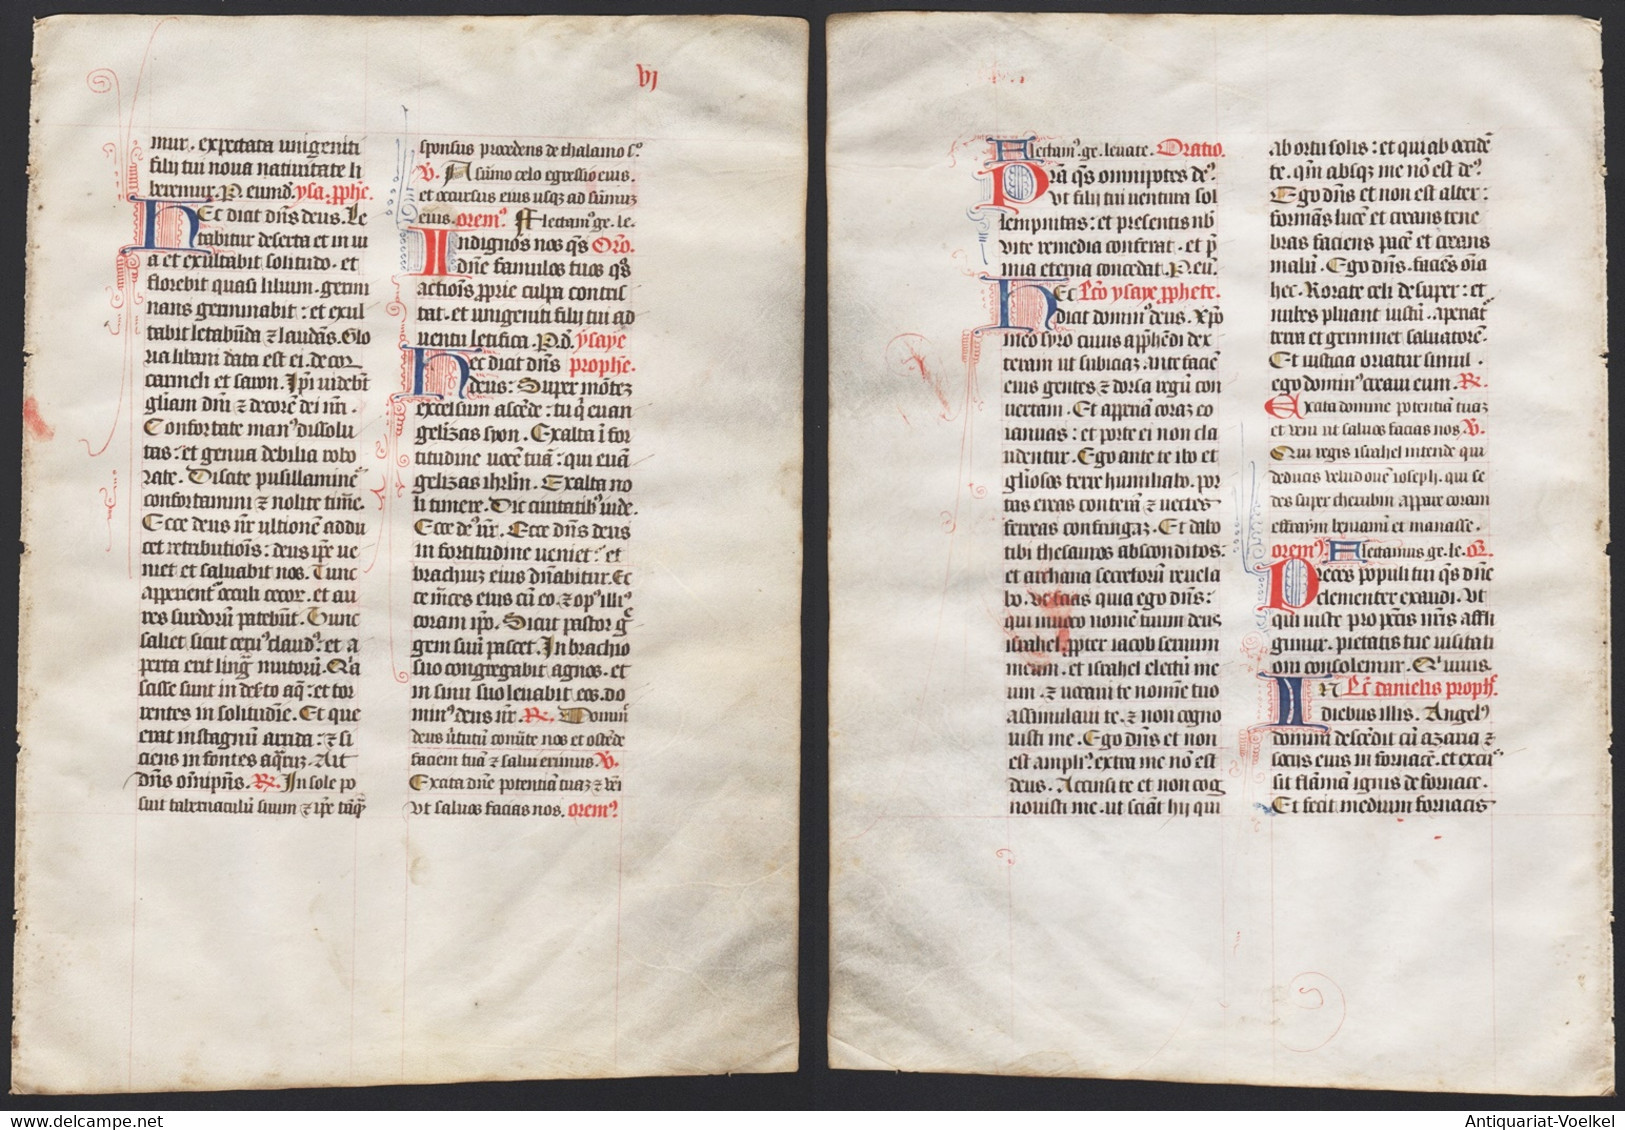 VI
mur. expectata unigeniti
filij tui noua natiuitate li
beremur. P. eumd. ysa. pphe.
Hec dicit dns deus. Le
tabitur deserta et in ui
a et exultabit solitudo. et
florebit quasi lilium. germi
nans germinabit: et exul
tabit letabūda & laudās. Glo
ria libani data est ei. decor
carmeli et saron. Ipi uidebt
gliam dni & decorē dei nri.
Confortate man9 dissolu
tas: et genua debilia robo
rate. Dicite pusillamines
confortamini & nolite timē.
Ecce deus nr ultionem addu
cet retributiois: deus ipe ue
niet et saluabit nos. Tunc
apperient oculi cecor. et au
res surdorū patebūt. Tunc
saliet sicut ceru9 claud9. et a
perta erit ling mutorū. Qa
scisse sunt in deserto aq: et tor
rentes in solitudie. Et que
erat in stagnum arida: & si
ciens in fontes aqruz. Ait
dns omipns. R. In sole po
suit tabernaculū suum & ipe taq
sponsus procedens de thalamo s9.
V. A sūmo celo egressio eius.
et occursus eius usqz ad sūmuz
eius. orem9. Flectam9 ge. le.
Indignos nos qs Oro.
dne famulos tuos qs
actiois pprie culpa contris
tat. et unigeniti filij tui ad
uentu letifica. P. d. ysaye
Hec dicit dns prophe.
deus: Super mōtez
excelsum ascēde: tu q euan
gelizas syon. Exalta i for
titudine uocē tuā: qui euā
gelizas ihrlm. Exalta no
li timere. Dic ciuitatib9 iude.
Ecce de9 nr. Ecce dns deus
in fortitudine ueniet: et
brachiuz eius dnabitur. Ec
ce mces eius cū eo. & op9 illi9
coram ipo. Sicut pastor g
gem suū pascet. In brachio
suo congregabit agnos. et
in sinu suo leuabit eos. do
min9 deus nr. R. Domine
deus uirtutū conuerte nos et ostēde
faciem tuā & salui erimus V.
Excita dne potentiā tuaz & veni
vt saluos facias nos. orem9.
Flectam9. ge. leuate. Oratio.
Pra qs omnipotes de9.
vt filij tui uentura sol
lempnitas: et presentis nb
vite remedia conferat. et p
mia eterna concedat. P. eu.
Hec Lco ysaye pphete.
dicit domin9 deus. xpo
meo cyro cuius apphēdi dex
teram ut subiciaz ante faciē
eius gentes & dorsa regū con
uertam. Et apperiā coraz eo
ianuas: et porte ei non clau
udentur. Ego ante te ibo et
gliosos terre humiliabo. por
tas ereas conterā & uectes
ferreas confringaz. Et dabo
tibi thesauros absconditos:
et archana secretorū reuela
bo. vt scias quia ego dns:
qui uoco nomē tuum deus
israhel. ppter iacob seruum
meum. et israhel electū me
um. & uocaui te nomie tuo
assimilaui te. & non cogno
uisti me. Ego dns et non
est ampli9. extra me no est
deus. Accinxi te et non cog
nouisti me. ut sciāt hij qui
ab ortu solis: et qui ab occidē
te. qm absqz me no est de9.
Ego dns et non est alter:
formās lucē et creans tene
bras faciens pacē et creans
malū. Ego dns. faciēs oia
hec. Rorate celi desuper: et
nubes pluant iustū. aperiat
terra et germinet saluatorē.
Et iusticia oriatur simul.
ego domin9 creaui eum. R.
Excita domine potentiā tuaz
et veni ut saluos facias nos. V.
Qui regis israhel intende qui
deducis velud ouē ioseph. qui se
des super cherubin appare coram
effraym beniamī et manasse.
orem9. Flectamus ge. le. Or.
Preces populi tui qs dne
clementer exaudi. vt
qui iuste pro pctis nris affli
gimur. pietatis tue uisitati
oni consolemur. Q. viuis.
In Lc danielis proph.
diebus illis. Angel9
domini descēdit cū azaria &
socijs eius in fornacē. et excus
sit flāmam ignis de fornace.
Et fecit medium fornacis
Antiquariat-Voelkel.com